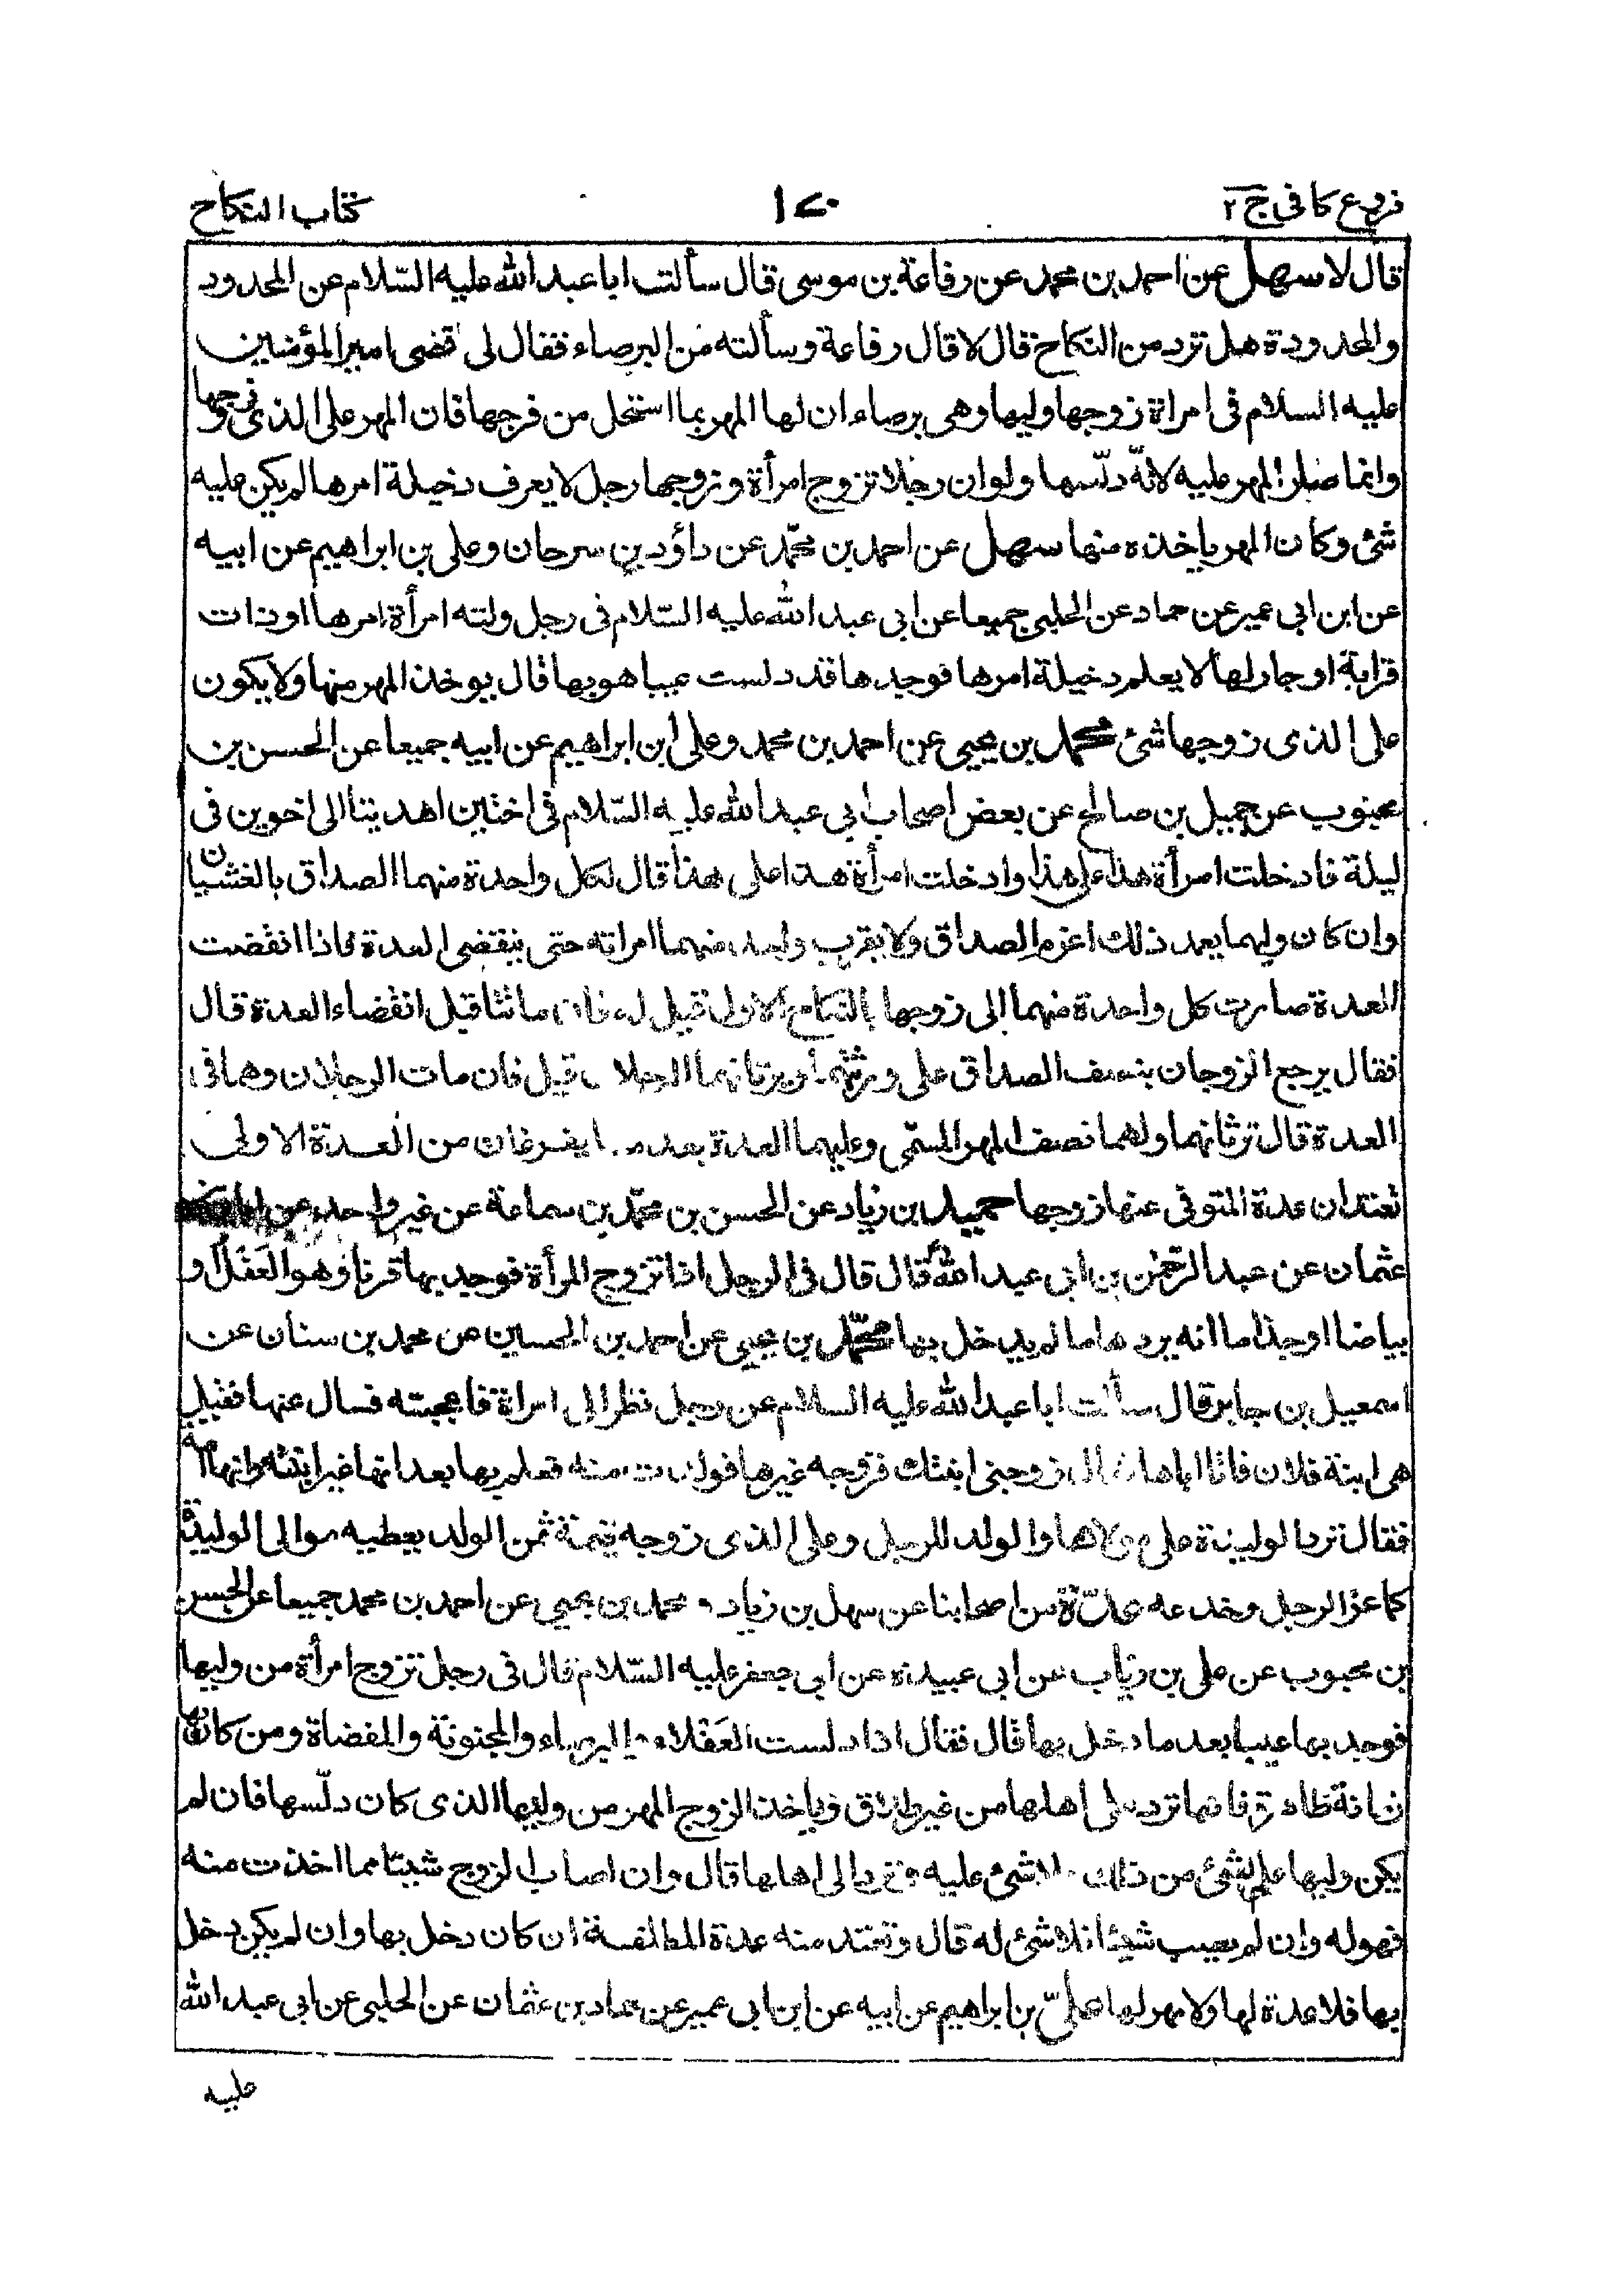 فروع كافى ج ٢
١٧٠
كتاب النكاح
قال لا سهل عن احمد بن محمد عن رفاعة بن موسى قال سألت ابا عبد الله عليه السّلام عن المحدود
والمحدودة هل ترد من النكاح قال لا قال رفاعة وسألته عن البرصاء فقال لى قضى امير المؤمنين
عليه السلام فى امراة زوجها وليها وهى برصاء ان لها المهر بما استحل من فرجها فان المهر على الذى زوجها
وانما صار المهر عليه لانّه دلّسها ولو ان رجلا تزوج امرأة وزوجها رجل لا يعرف دخيلة امرها لم يكن عليه
شئ وكان المهر ياخذه منها سهل عن احمد بن محمّد عن داؤد بن سرحان وعلى بن ابراهيم عن ابيه
عن ابن ابى عمير عن حماد عن الحلبى جميعا عن ابى عبد الله عليه السّلام فى رجل ولته امرأة امرها او ذات
قرابة او جار لها لا يعلم دخيلة امرها فوجدها قد دلست عيبا هو بها قال يوخذ المهر منها ولا يكون
على الذى زوجها شئ محمد بن يحيى عن احمد بن محمد وعلى ابن ابراهيم عن ابيه جميعا عن الحسن بن
محبوب عن جميل بن صالح عن بعض اصحاب ابى عبد الله عليه السّلام فى اختين اهديتا الى اخوين فى
ليلة فادخلت امرأة هذا على هذا وادخلت امرأة هذا على هذا قال لكل واحدة منهما الصداق بالغشيان
وان كان وليهما يعمد ذلك اغرم الصداق ولا يقرب واحد منهما امراته حتى ينقضى العدة فاذا انقضت
العدة صارت كل واحدة منهما الى زوجها بالنكاح الاول قيل له فان ماتتا قبل انقضاء العدة قال
فقال يرجع الزوجان بنصف الصداق على ورثتهما ويرثانهما الرجلان قيل فان مات الرجلان وهما فى
العدة قال ترثانهما ولهما نصف المهر المسمّى وعليهما العدة بعد ما يفرغان من العدّة الاولى
تعتدان عدة المتوفى عنها زوجها حميد بن زياد عن الحسن بن محمّد بن سماعة عن غير واحد عن ابان
عثمان عن عبد الرّحمٰن بن ابى عبد الله قال قال فى الرجل اذا تزوج المرأة فوجد بها قرنا وهو العَفَل او
بياضا او جذاما انه يردها ما لم يدخل بها محمّد بن يحيى عن احمد بن الحسين عن محمد بن سنان عن
اسمعيل بن جابر قال سألت ابا عبد الله عليه السلام عن رجل نظر الى امراة فاعجبته فسال عنها فقيل
هى ابنة فلان فاتا اباها فقال زوجنى ابنتك فزوجه غيرها فولدت منه فعلم بها بعد انها غير ابنته وانها امة
فقال ترد الوليدة على مولاها والولد للرجل وعلى الذى زوجه قيمة ثمن الولد يعطيه موالى الوليدة
كما غرّ الرجل وخدعه عدّة من اصحابنا عن سهل بن زياد و محمد بن يحيى عن احمد بن محمد جميعا عن الحسن
بن محبوب عن على بن رئاب عن ابى عبيدة عن ابى جعفر عليه السّلام قال فى رجل تزوج امرأة من وليها
فوجد بها عيبا بعد ما دخل بها قال فقال اذا دلست العَفَلاء والبرصاء والمجنونة والمفضاة ومن كان بها
زمانة ظاهرة فانها ترد على اهلها من غير طلاق وياخذ الزوج المهر من وليها الذى كان دلّسها فان لم
يكن وليها علم بشئ من ذلك فلا شئ عليه وترد الى اهلها قال وان اصاب الزوج شيئا مما اخذت منه
فهو له وان لم يصب شيئا فلا شئ له قال وتعتد منه عدة المطلقة ان كان دخل بها وان لم يكن دخل
بها فلا عدة لها ولا مهر لها علىّ بن ابراهيم عن ابيه عن ابن ابى عمير عن حماد بن عثمان عن الحلبى عن ابى عبد الله
عليه